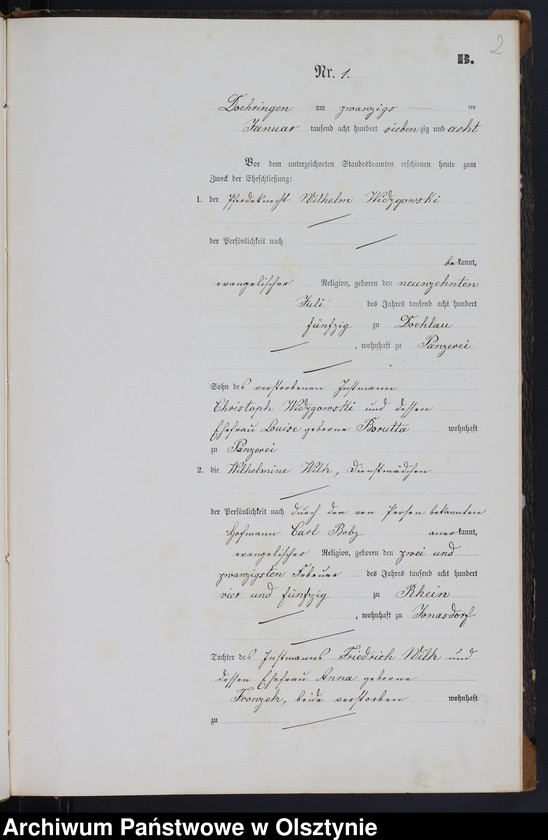 2
B.
Nr. 1.
Doehringen am zwanzigs ten
Januar tausend acht hundert siebenzig und acht
Vor dem unterzeichneten Standesbeamten erschienen heute zum
Zweck der Eheschließung:
1. der Pferdeknecht Wilhelm Widzgowski
der Persönlichkeit nach
bekannt,
evangelischer Religion, geboren den neunzehnten
Juli des Jahres tausend acht hundert
fünfzig zu Doehlau
, wohnhaft zu Panzerei
Sohn des verstorbenen Instmann
Christoph Widzgowski und dessen
Ehefrau Louise geborne Borutta wohnhaft
zu Panzerei
2. die Wilhelmine Wilk, Dienstmädchen
der Persönlichkeit nach durch den von Person bekannten
Hofmann Carl anerkannt,
evangelischer Religion, geboren den zwei und
zwanzigsten Februar des Jahres tausend acht hundert
vier und fünfzig zu Rhein
, wohnhaft zu Jonasdorf
Tochter des Instmanns Friedrich Wilk und
dessen Ehefrau Anna geborne
Fronzek, beide verstorben wohnhaft
zu
Archiwum Państwowe w Olsztynie